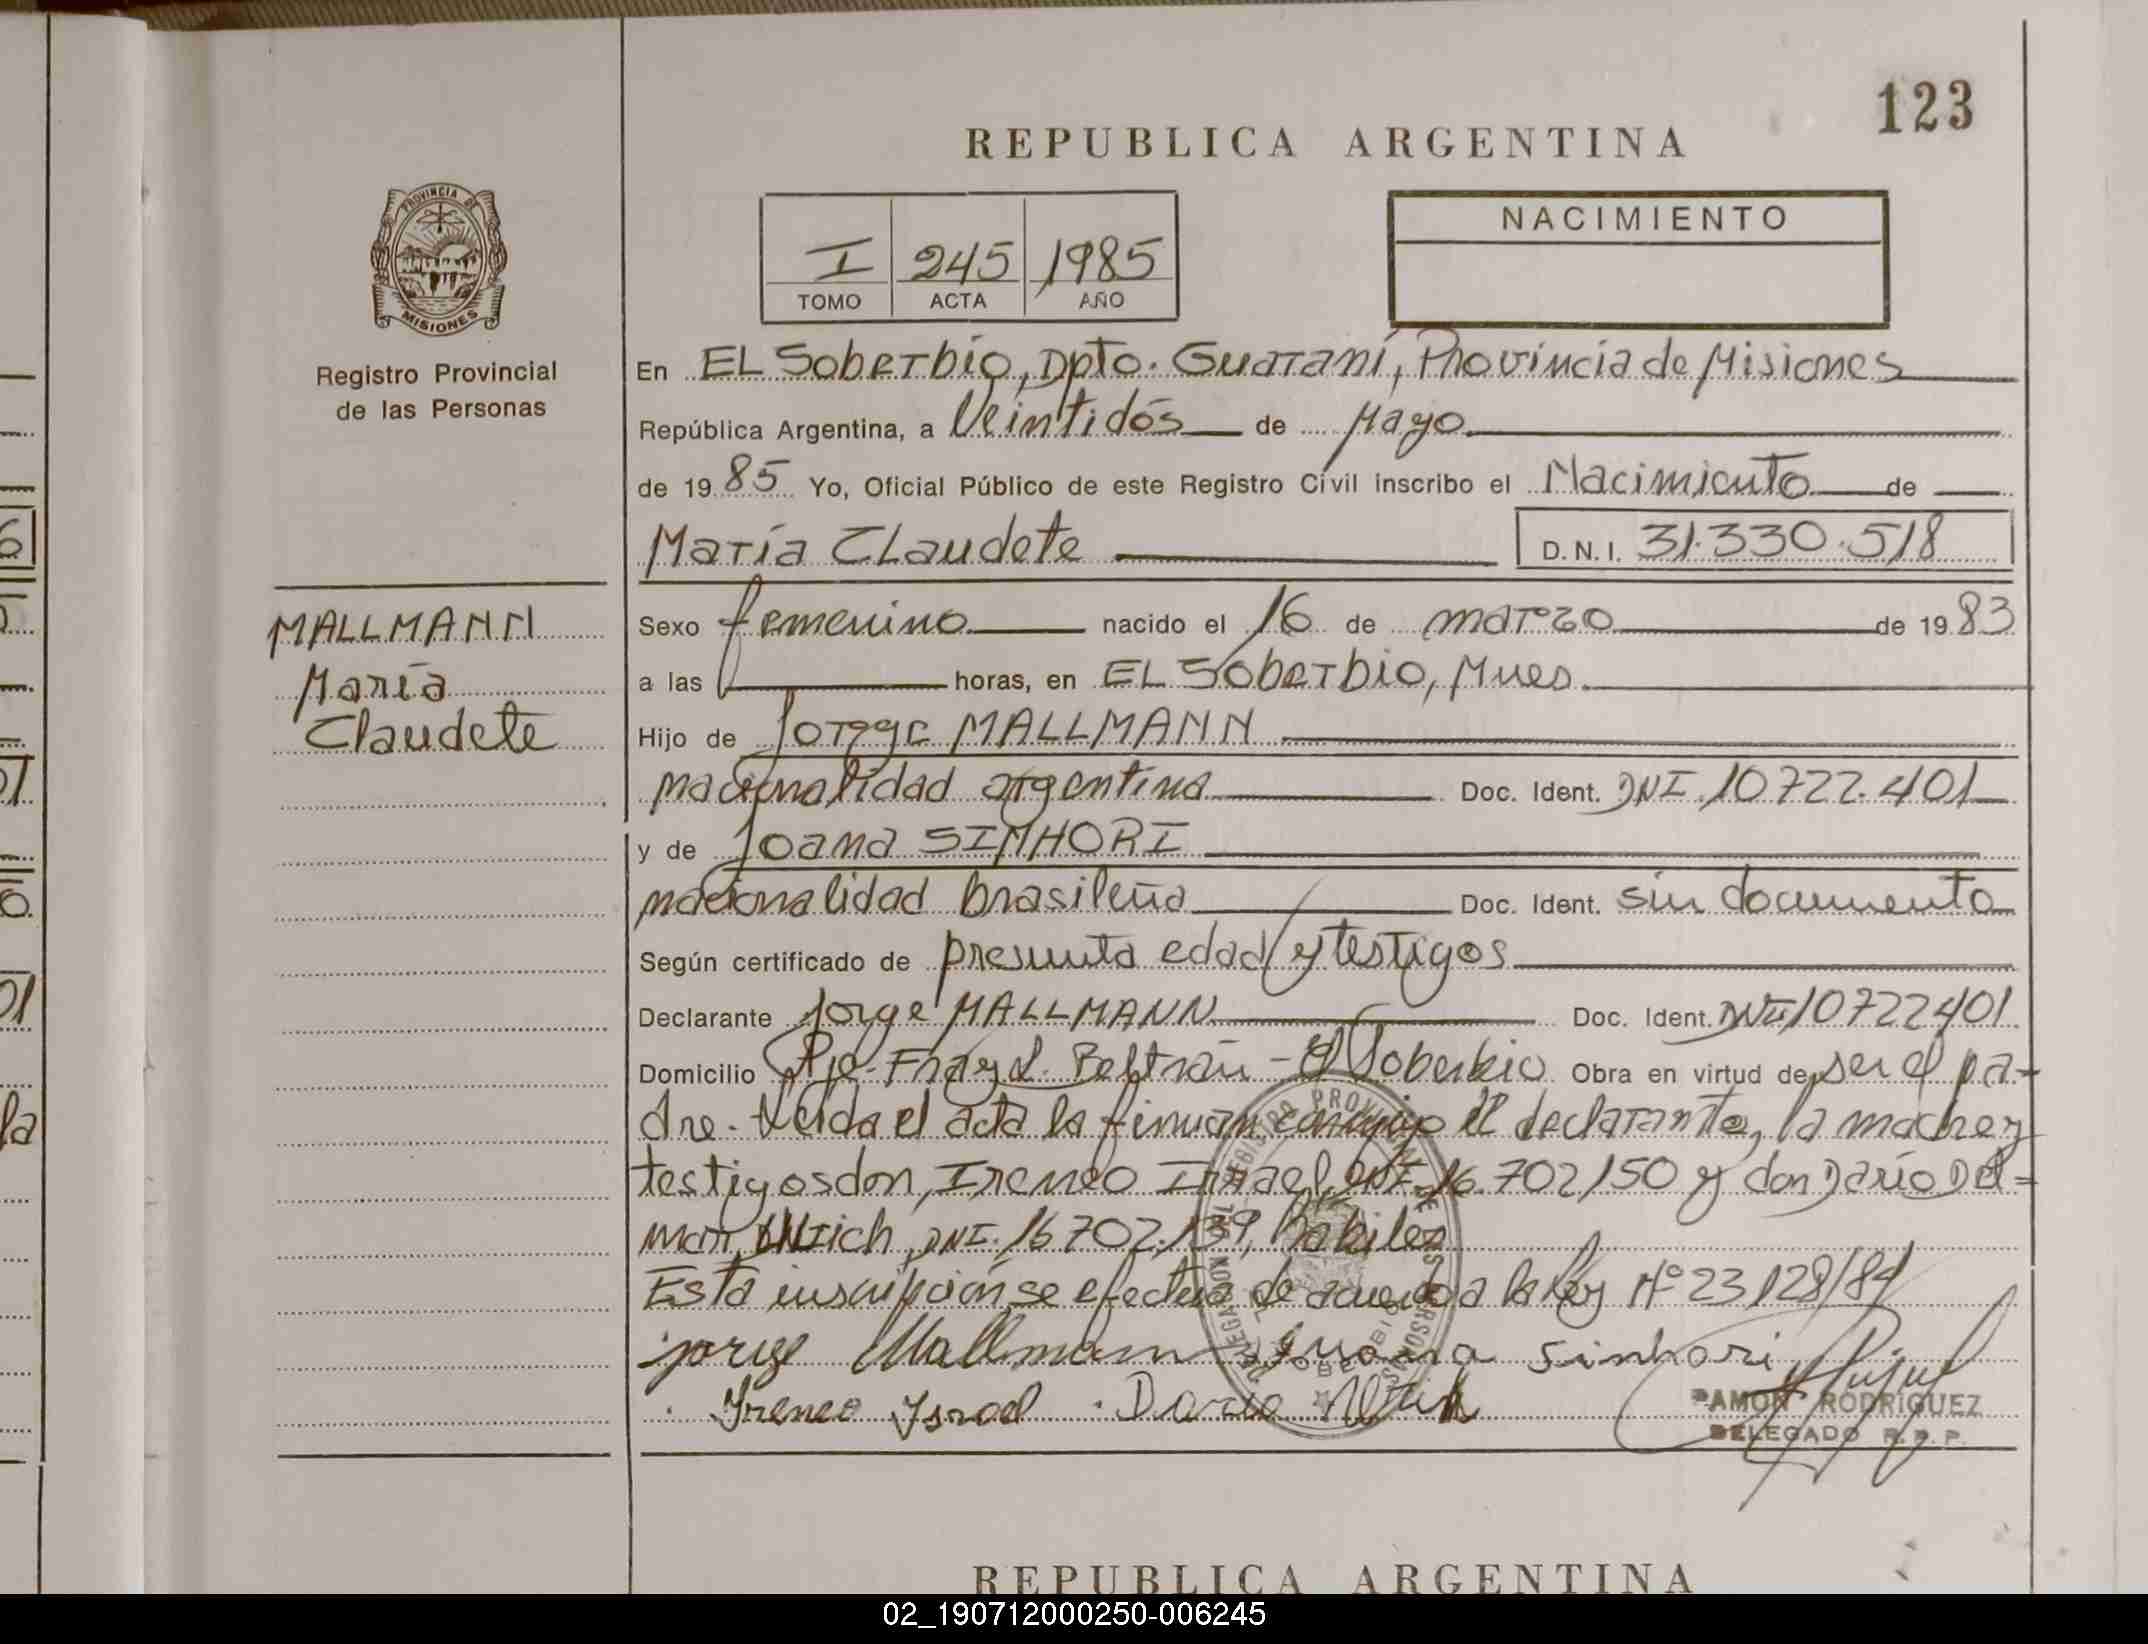 123
REPUBLICA ARGENTINA
PROVINCIA DE
MISIONES
Registro Provincial
de las Personas
I 245 1985
TOMO ACTA AÑO
NACIMIENTO
En EL Soberbio, Dpto. Guaraní, Provincia de Misiones
República Argentina, a Veintidós de Mayo
de 1985 Yo, Oficial Público de este Registro Civil inscribo el Nacimiento de
María Claudete D.N.I. 31.330.518
MALLMANN
María
Claudete
Sexo femenino nacido el 16 de marzo de 1983
a las horas, en EL Soberbio, Mnes.
Hijo de Jorge MALLMANN
nacionalidad argentina Doc. Ident. DNI 10722.401
y de Joana SINHORI
nacionalidad brasileña Doc. Ident. sin documento
Según certificado de presunta edad y testigos
Declarante Jorge MALLMANN Doc. Ident. DNI 10722401
Domicilio Pje. Fray L. Beltrán - El Soberbio Obra en virtud de ser el pa-
dre. Leida el acta la firman conmigo el declarante, la madre y
testigos don, Ireneo Israel, DNI. 16.702150 y don Darío Del=
mar DNI. 16702.139, habiles
Esta inscripción se efectua de acuerdo a la Ley Nº 23128/84
jorge Mallmann Juoana Sinhori
Ireneo Israel . Dario
RAMON RODRIGUEZ
DELEGADO R.P.P.
REPUBLICA ARGENTINA
02_190712000250-006245